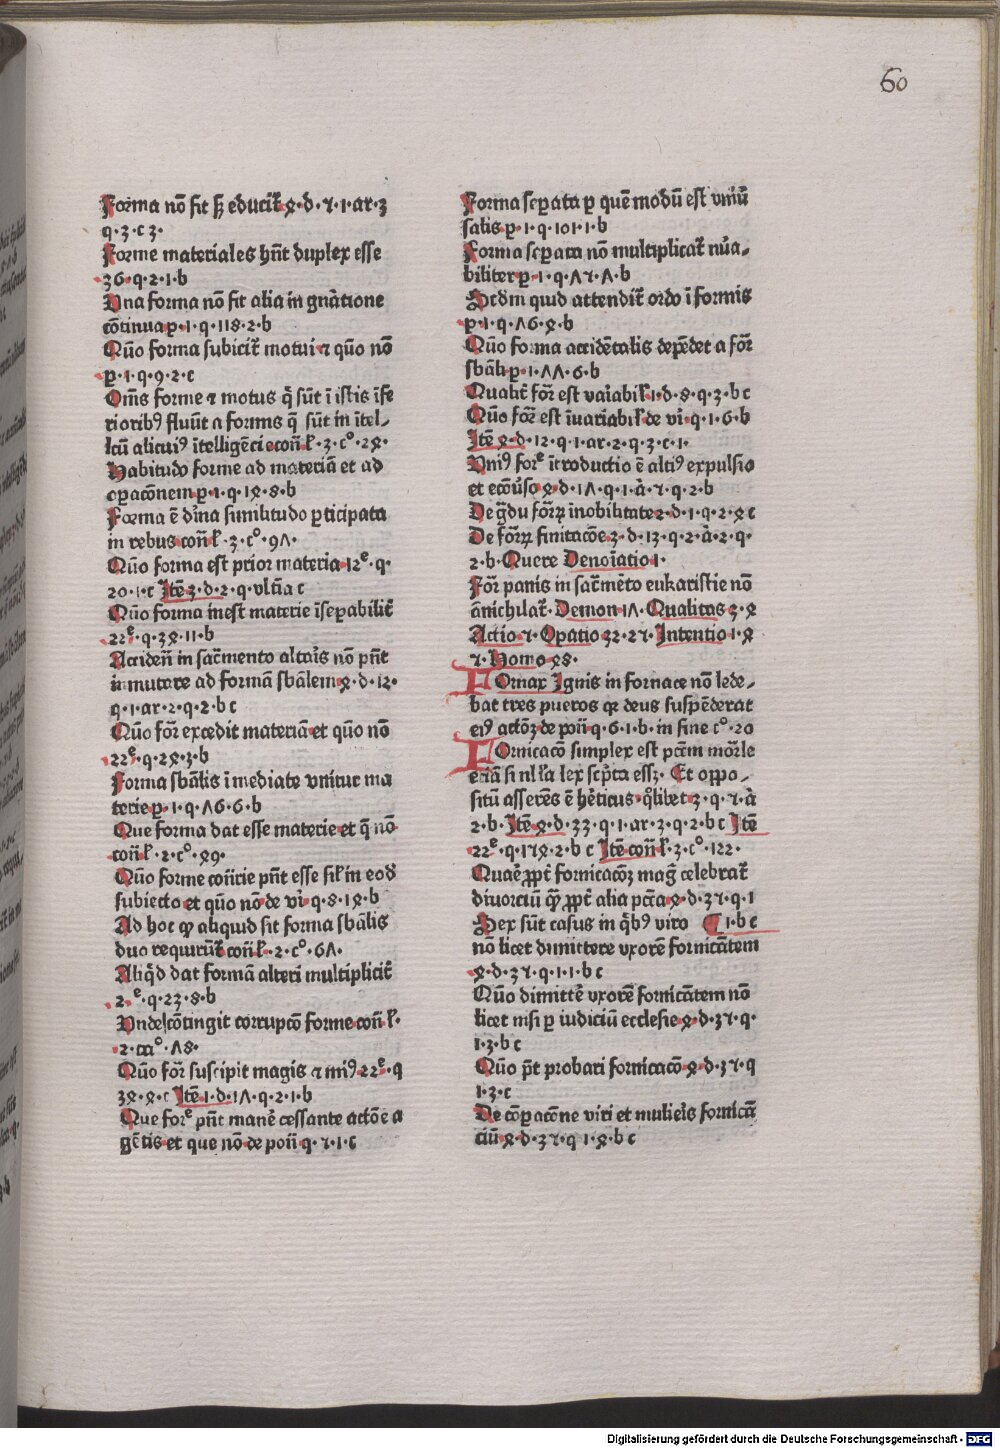 60
Forma nō fit sꝫ educit᷑ ꝝ·d·ꝛ·1·ar·3
q·3·c 3·
Forme materiales hn̄t duplex esse
36·q·2·1·b
Vna forma nō fit alia in gn̄atione
cōtinua p̱·1·q·118·2·b
Qūo forma subicit᷑ motui ⁊ qūo nō
p̱·1·q·9·2·c
Om̄s forme ⁊ motus q̄ sūt ī istis īfe
rioribꝰ fluūt a formis q̄ sūt in ītel-
lcū alicuiꝰ ītelligēcie
Habitudo forme ad materiā et ad
oꝑacōnem p̱·1·q·14·8·b
Forma ē dīna similitudo ꝑticipata
in rebus con̄ ł·3·c°·9Λ·
Qūo forma est prior materia 12ᵉ·q·
20·1·c Itē 3·d·2·q·vltīa c
Qūo forma inest materie īseꝑabilit᷑
22ᵉ·q·34·11·b
Acciden̄ in sac̄mento altaīs nō pn̄t
īmutare ad formā sbālem 4·d·12·
q·1·ar·2·q·2·b c
Qūo for̄ excedit materiā et qūo nō
22ᵉ·q·24·3·b
Forma sbālis īmediate vnitur ma
terie p̱·1·q·Λ6·6·b
Que forma dat esse materie et q̄ nō
con̄ ł·2·c°·49·
Qūo forme con̄rie pn̄t esse sił in eod̄
subiecto et qūo nō de vī·q·8·14·b
Ad hoc qꝙ aliquid sit forma sbālis
duo requirūt᷑ con̄ ł·2·c°·6Λ·
Aliq̄d dat formā alteri multiplicit᷑
2ᵉ·q·23·8·b
Vnde cōtingit corrupcō forme con̄ ł·
2·ca°·Λ8·
Qūo for̄ suscipit magis ⁊ miꝰ 22ᵉ·q
34·4·c Itē 1·d·1Λ·q·2·1·b
Que forᵉ pn̄t manē cessante actōe a
gētis et que nō de pon̄ q·ꝛ·1·c
Forma seꝑata ꝑ quē modū est vniūr
salis p̱·1·q·101·1·b
Forma seꝑata nō multiplicat᷑ nūa-
biliter p̱·1·q·Λꝛ·Λ·b
Scd̄m quid attendit᷑ ordo ī formis
p̱·1·q·Λ6·4·b
Qūo forma accidētalis depēdet a for̄
sbāli p̱·1·ΛΛ·6·b
Qualit᷑ for̄ est vaīabił 1·d·8·q·3·b c
Qūo for̄ est īuariabił de vī·q·1·6·b
Itē 4·d·12·q·1·ar·2·q·3·c·1·
Vniꝰ forᵉ ītroductio ē altiꝰ expulsio
et ecōūso 4·d·1Λ·q·1·ā·ꝛ·q·2·b
De g̃du for̄ꝝ īnobilitate 2·d·1·q·2·4 c
De for̄ꝝ finitacōe 3·d·13·q·2·ā·2·q·
2·b·Quere Denoīatio 1·
For̄ panis in sac̄mēto eukaristie nō
ānichilat᷑·Demon 1Λ·Qualitas 3·4
Actio ꝛ·Oꝑatio 32·2ꝛ·Intentio 1·4
ꝛ·Homo 48·
FOrnax Ignis in fornace nō lede-
bat tres pueros qꝛ deus suspēderat
eiꝰ actōꝫ de pon̄ q·6·1·b·in fine c°·20
FOrnicacō simplex est pctm̄ mor̄le
etiā si nlla lex scpta essꝫ·Et oppo-
situ asserēs ē hēticus·qͦlibet 3·q·ꝛ·ā
2·b·Itē 4·d·33·q·1·ar·3·q·2·b c Itē
22ᵉ·q·1ꝛ4·2·b c Itē con̄ ł·3·c°·122·
Quaē ꝓpt̄ fornicacōꝫ mag̃ celebrat᷑
diuorciū qꝙ ꝓpt̄ alia pctā 4·d·3ꝛ·q·1
Sex sūt casus in qͥbꝰ viro ¶ 1·b c
nō licet dimittere vxorē fornicātem
4·d·3ꝛ·q·1·1·b c
Qūo dimittē vxorē fornicātem nō
licet nisi ꝑ iudiciū ecclesie 4·d·3ꝛ·q·
1·3·b c
Qūo pt̄ probari fornicacō 4·d·3ꝛ·q
1·3·c
De cōꝑacōne viri et mulieīs fornicā
ciū 4·d·3ꝛ·q 1·4·b c
Digitalisierung gefördert durch die Deutsche Forschungsgemeinschaft - DFG